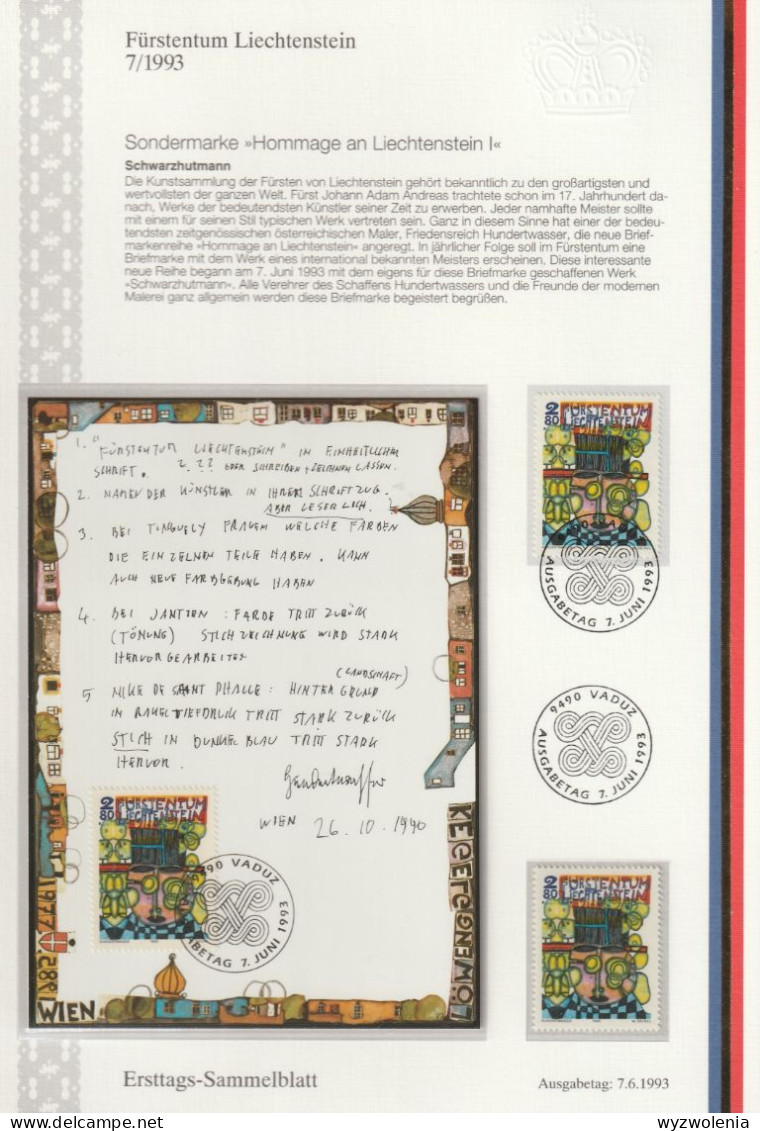 Fürstentum Liechtenstein
7/1993
Sondermarke »Hommage an Liechtenstein I«
Schwarzhutmann
Die Kunstsammlung der Fürsten von Liechtenstein gehört bekanntlich zu den großartigsten und
wertvollsten der ganzen Welt. Fürst Johann Adam Andreas trachtete schon im 17. Jahrhundert da-
nach, Werke der bedeutendsten Künstler seiner Zeit zu erwerben. Jeder namhafte Meister sollte
mit einem für seinen Stil typischen Werk vertreten sein. Ganz in diesem Sinne hat einer der bedeu-
tendsten zeitgenössischen österreichischen Maler, Friedensreich Hundertwasser, die neue Brief-
markenreihe »Hommage an Liechtenstein« angeregt. In jährlicher Folge soll im Fürstentum eine
Briefmarke mit dem Werk eines international bekannten Meisters erscheinen. Diese interessante
neue Reihe begann am 7. Juni 1993 mit dem eigens für diese Briefmarke geschaffenen Werk
»Schwarzhutmann«. Alle Verehrer des Schaffens Hundertwassers und die Freunde der modernen
Malerei ganz allgemein werden diese Briefmarke begeistert begrüßen.
1. "FÜRSTENTUM LIECHTENSTEIN" IN EINHEITLICHER
SCHRIFT. ODER SCHREIBEN + ZEICHNEN LASSEN.
2. NAMEN DER KÜNSTLER IN IHREM SCHRIFTZUG.
ABER LESERLICH.
3. BEI TINGUELY FRAGEN WELCHE FARBEN
DIE EINZELNEN TEILE HABEN. KANN
AUCH NEUE FARBGEBUNG HABEN
4. BEI JANTZEN: FARBE TRITT ZURÜCK
(TÖNUNG) STICHZEICHNUNG WIRD STARK
HERVORGEARBEITET
(LANDSCHAFT)
5 NIKE DE SAINT PHALLE: HINTERGRUND
IN RAKELTIEFDRUCK TRITT STARK ZURÜCK
STICH IN DUNKELBLAU TRITT STARK
HERVOR.
WIEN 26.10.1990
2
80 FÜRSTENTUM
LIECHTENSTEIN
9490 VADUZ
AUSGABETAG 7. JUNI 1993
1977
1882
WIEN
2
80 FÜRSTENTUM
LIECHTENSTEIN
9490 VADUZ
AUSGABETAG 7. JUNI 1993
9490 VADUZ
AUSGABETAG 7. JUNI 1993
2
80 FÜRSTENTUM
LIECHTENSTEIN
Ersttags-Sammelblatt
Ausgabetag: 7.6.1993
www.delcampe.net
wyzwolenia